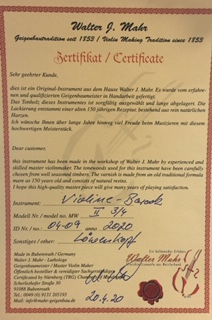 Walter J. Mahr
Geigenbautradition seit 1853 / Violin Making Tradition since 1853
Zertifikat / Certificate
Sehr geehrter Kunde,
dies ist ein Original Instrument aus dem Hause Walter J. Mahr Es wurde von erfahrenen
und qualifizierten Geigenbaumeister in Handarbeit gefertigt.
Das Tonholz dieses Instrumentes ist sorgfältig ausgewählt und lange abgelagert. Die
Lackierung entstammt einer alten 150 jährigen Rezeptur bestehend aus rein natürlichen
Harzen.
Ich wünsche Ihnen über lange Jahre hinweg viel Freude beim Musizieren mit diesem
hochwertigen Meisterstück.
Dear customer,
this instrument has been made in the workshop of Walter J. Mahr by experienced and
skilled master violinmaker. The tonewoods used for this instrument have been carefully
chosen from well seasoned timbers. The varnish is made from an old traditional formula
more as 150 years old and consists of natural resins.
I hope this high-quality master piece will give many years of playing satisfaction.
Instrument: Violine-Barock
Modell Nr./ model no. MW II 3/4
ID Nr. / no. 04-09 2020
Sonstiges / other: Löwenkopf
Made in Bubenreuth / Germany
Walter J. Mahr - Luthology
Geigenbaumeister / Master Violin Maker
Scherleshofer Straße
91088 Bubenreuth
20.4.20